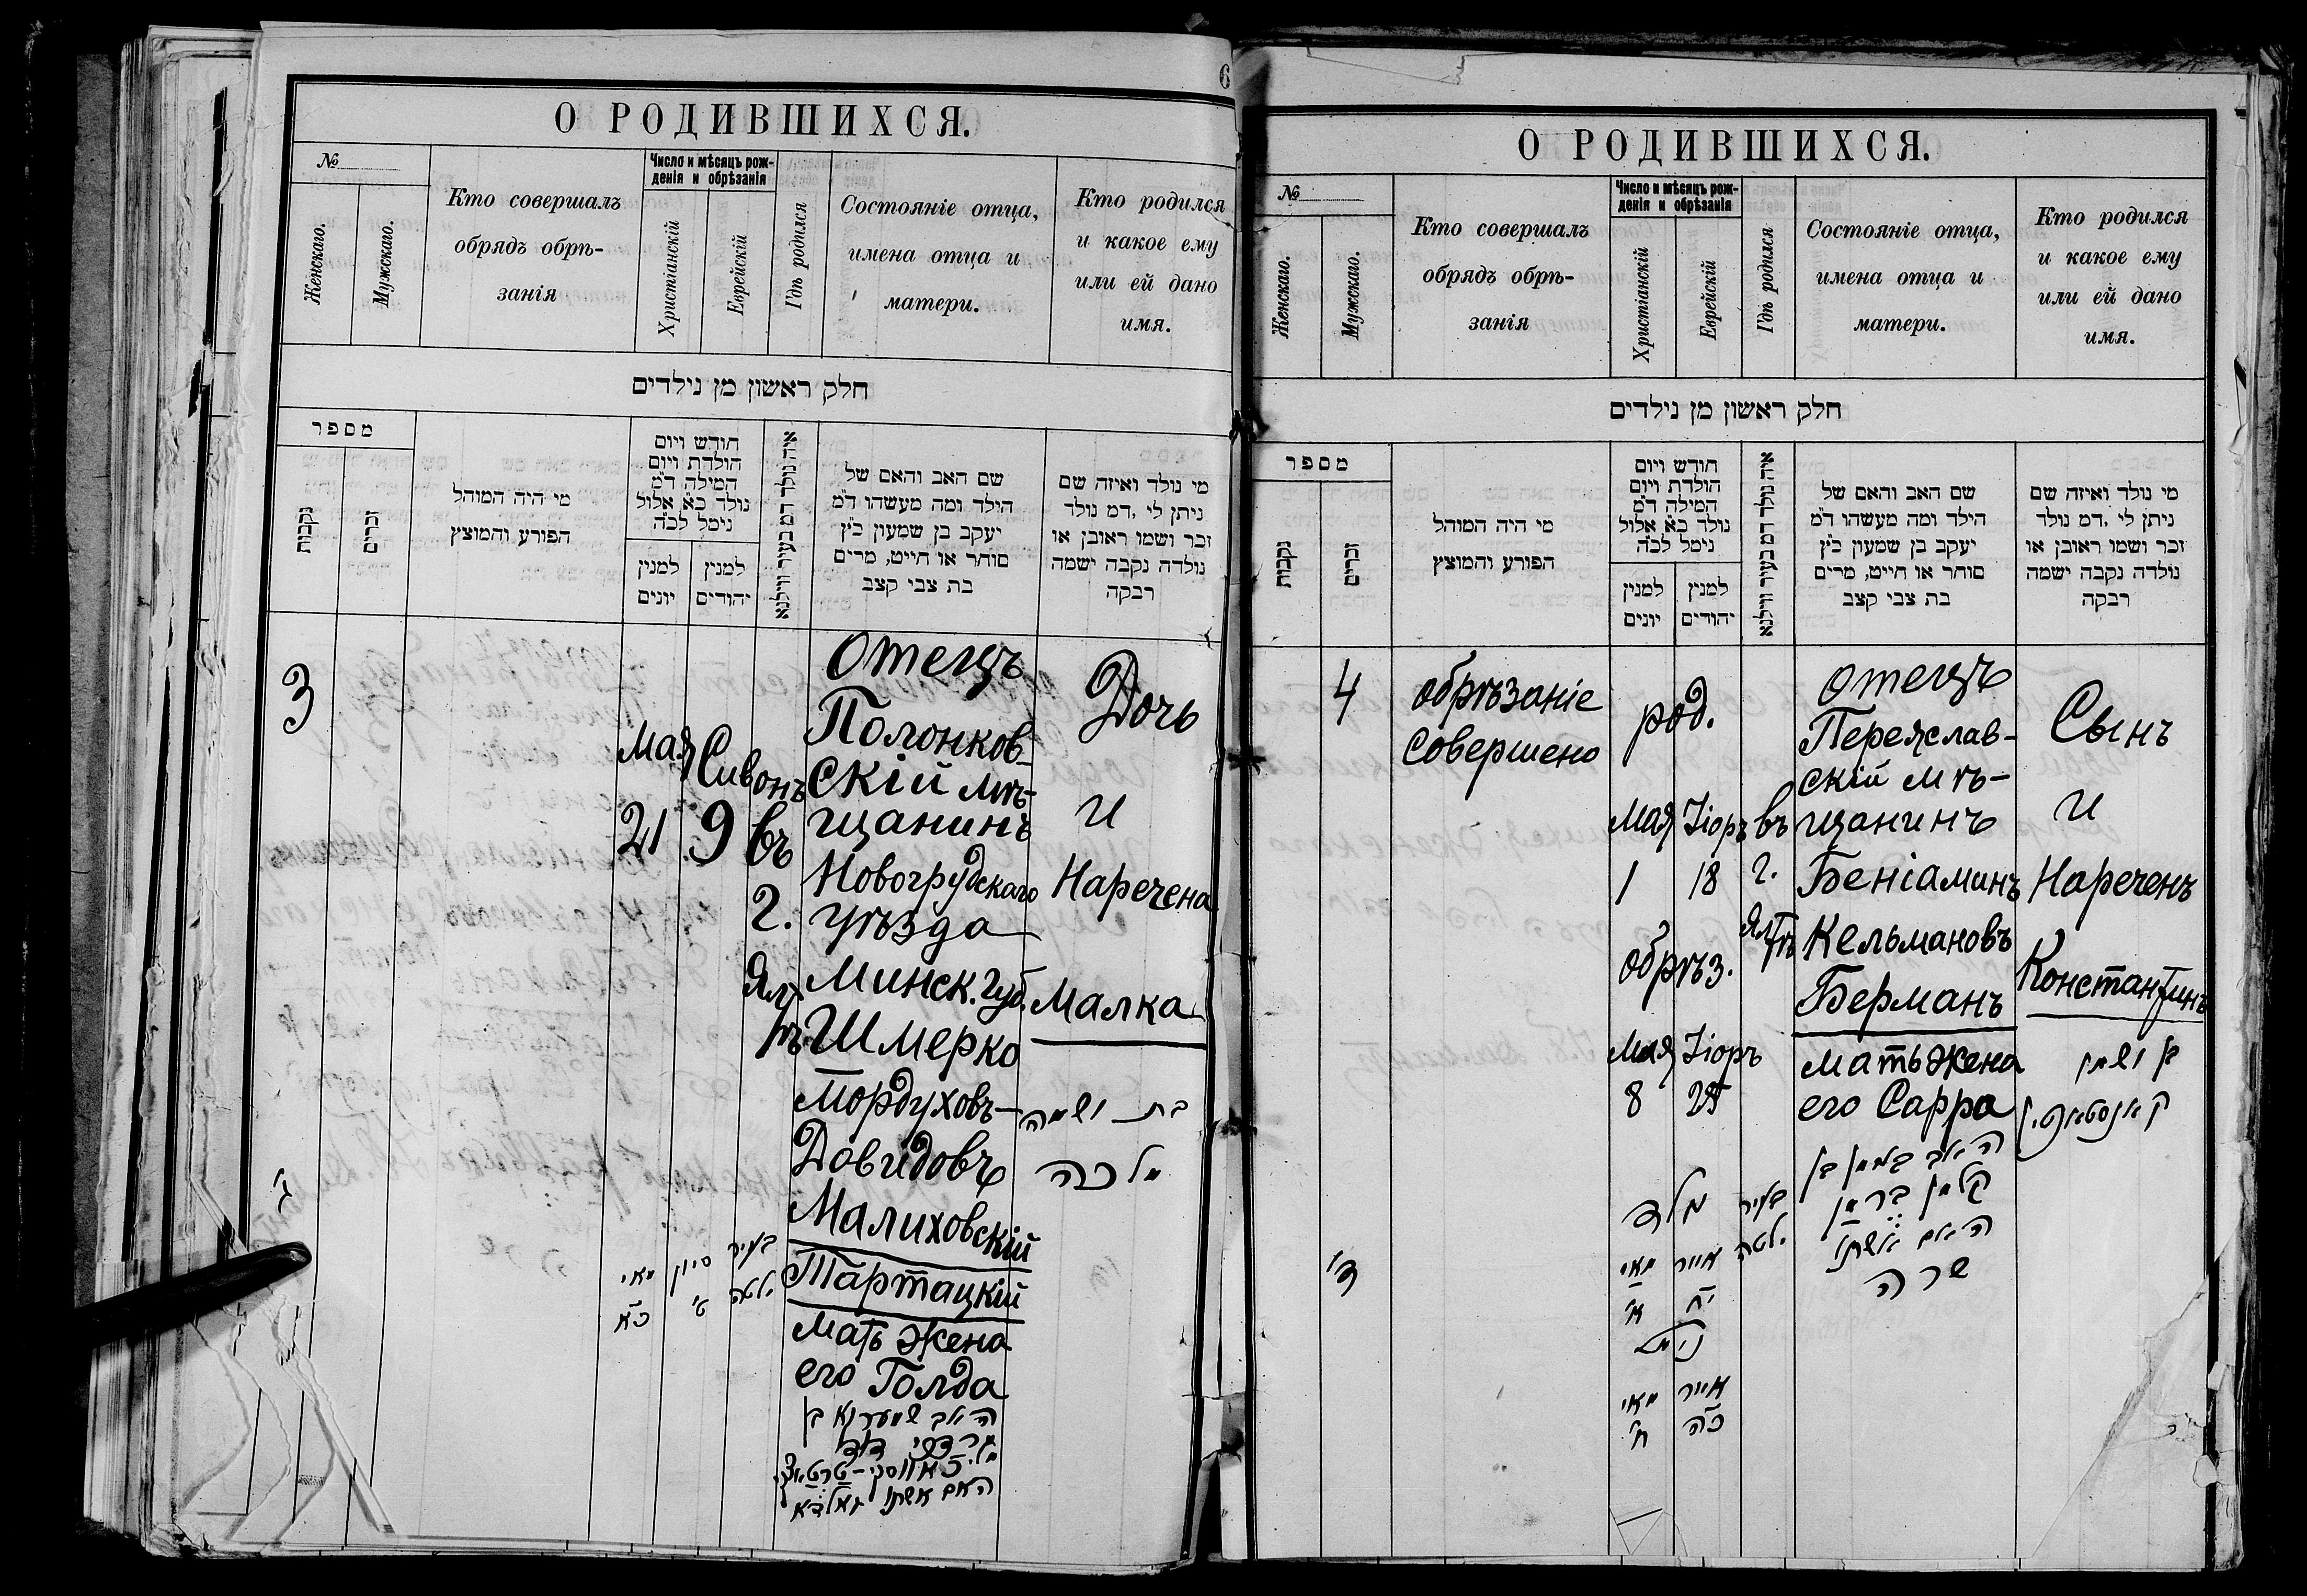 6
О РОДИВШИХСЯ.
№
Женскаго.
Мужскаго.
Кто совершалъ
обрядъ обрѣ-
занія
Число и мѣсяцъ рож-
денія и обрѣзанія
Христіанскій
Еврейскій
Гдѣ родился
Состояніе отца,
имена отца и
матери.
Кто родился
и какое ему
или ей дано
имя.
חלק ראשון מן נילדים
מספר
נקבות
זכרים
מי היה המוהל
הפורע והמוצץ
חודש ויום
הולדת ויום
המילה ד״מ
נולד כ״א אלול
נימל לכ״ה
למנין
יונים
למנין
יהודים
איה נולד דמ בעיר ווילנא
שם האב והאם של
הילד ומה מעשהו ד״מ
יעקב בן שמעון כ״ץ
סוחר או חייט, מרים
בת צבי קצב
מי נולד ואיזה שם
ניתן לי ,דמ נולד
זכר ושמו ראובן או
נולדה נקבה ישמה
רבקה
3
Мая
21
Сивонъ
9
въ
г.
Ял
тѣ
Отецъ
Полонков-
скій мѣ-
щанинъ
Новогрудскаго
уѣзда
Минск. губ.
Шмерко
Мордуховъ-
Довидовъ
Малиховскій
Тартацкій
Мать жена
его Голда
Дочь
и
Наречена
Малка
בת ושמה
מלכה
ג׳
מאי
כ״א
סיון
ט׳
בעיר
ילטה
האב שמערקא בן
מרדכי דוד
האם אשתו גאלדא
О РОДИВШИХСЯ.
№
Женскаго.
Мужскаго.
Кто совершалъ
обрядъ обрѣ-
занія
Число и мѣсяцъ рож-
денія и обрѣзанія
Христіанскій
Еврейскій
Гдѣ родился
Состояніе отца,
имена отца и
матери.
Кто родился
и какое ему
или ей дано
имя.
חלק ראשון מן נילדים
מספר
נקבות
זכרים
מי היה המוהל
הפורע והמוצץ
חודש ויום
הולדת ויום
המילה ד״מ
נולד כ״א אלול
נימל לכ״ה
למנין
יונים
למנין
יהודים
איה נולד דמ בעיר ווילנא
שם האב והאם של
הילד ומה מעשהו ד״מ
יעקב בן שמעון כ״ץ
סוחר או חייט, מרים
בת צבי קצב
מי נולד ואיזה שם
ניתן לי ,דמ נולד
זכר ושמו ראובן או
נולדה נקבה ישמה
רבקה
4
обрѣзаніе
совершено
род.
Мая Іюръ
1 18
обрѣз.
Мая Іюръ
8 25
въ
г.
Ял
тѣ
отецъ
Переяслав-
скій мѣ-
щанинъ
Беніаминъ
Кельмановъ
Берманъ
мать жена
его Сарра
Сынъ
и
Нареченъ
Константинъ
בן ושמו
קאנסטאנטין
ד׳
מאי אייר
א׳ י״ח
מאי אייר
ח׳ כ״ה
בעיר
ילטה
האב בנימין בן
קלמן ברמן
האם אשתו
שרה